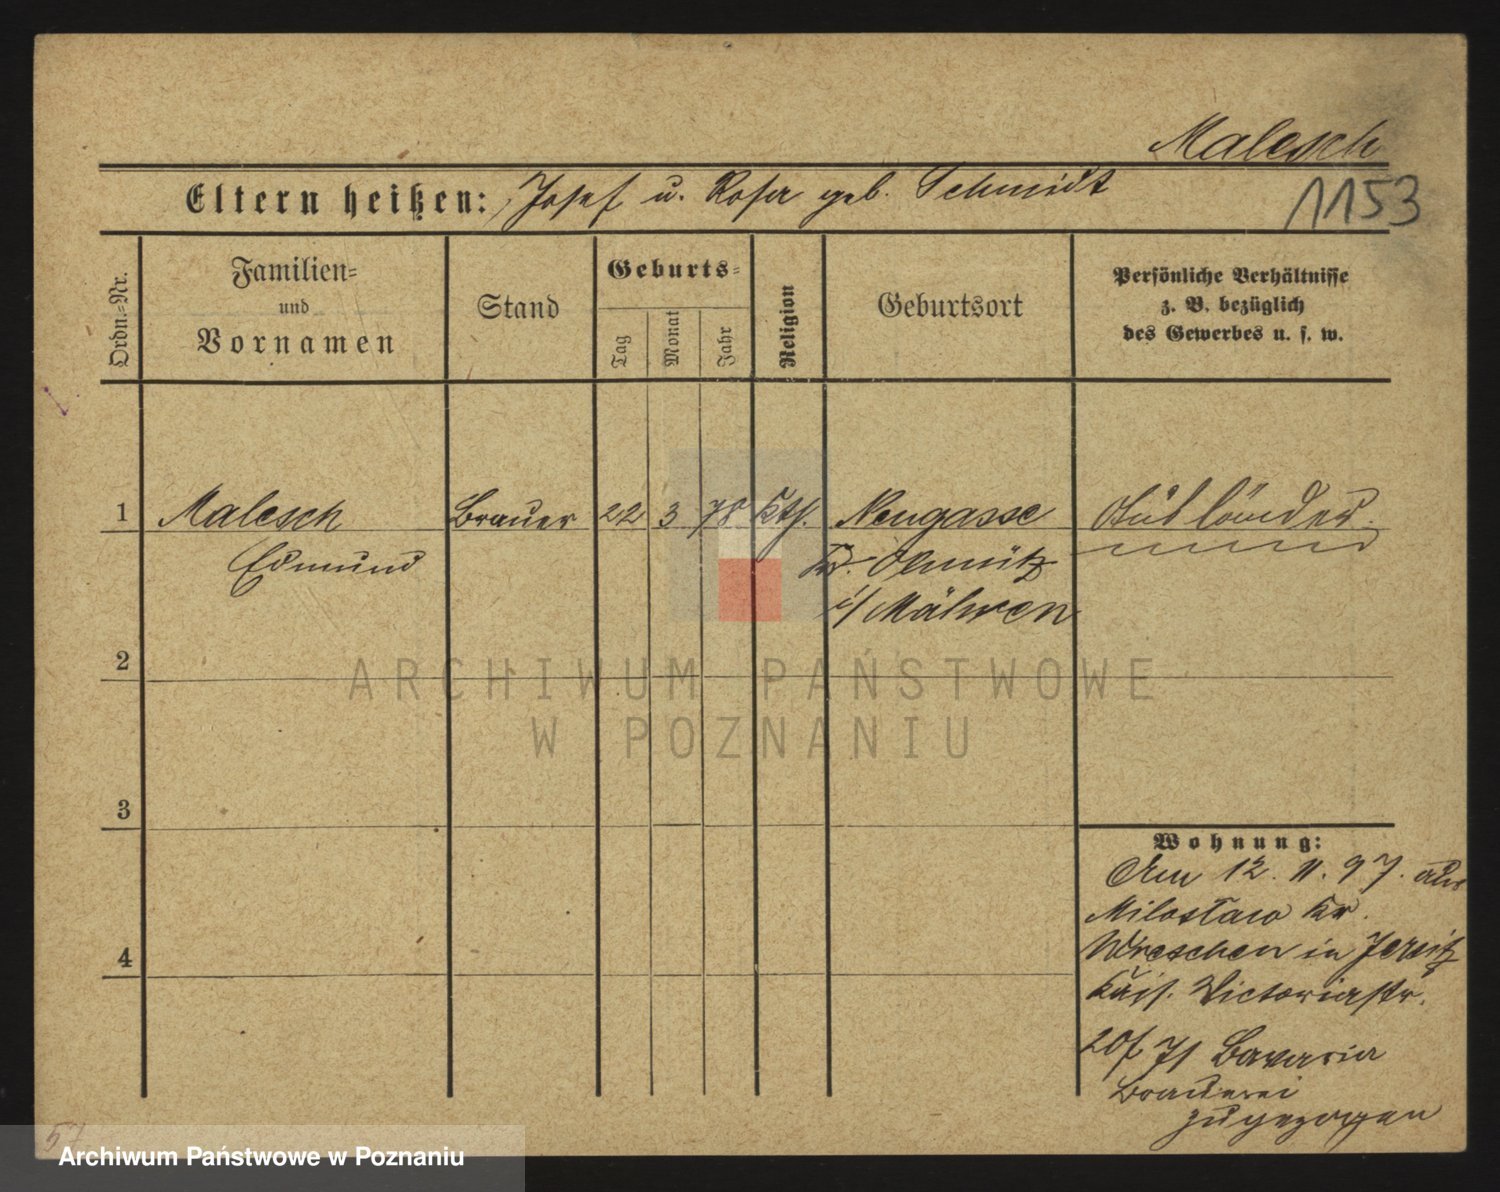 Malesch
Eltern heißen: Josef u. Rosa geb. Schmidt
1153
Ordn.-Nr.
Familien-
und
Vornamen
Stand
Geburts-
Tag
Monat
Jahr
Religion
Geburtsort
Persönliche Verhältnisse
z. B. bezüglich
des Gewerbes u. s. w.
1 Malesch Brauer 22 3 78 kth. Neugasse Ausländer.
Edmund Kr. Olmütz
i/ Mähren
2
ARCHIWUM PAŃSTWOWE
W POZNANIU
3
Wohnung:
Am 12. 11. 97. aus
Miloslaw Kr.
Wreschen in Jersitz
Kais. Victoriastr.
4
20 Bavaria
Brauerei
zugezogen
57
Archiwum Państwowe w Poznaniu